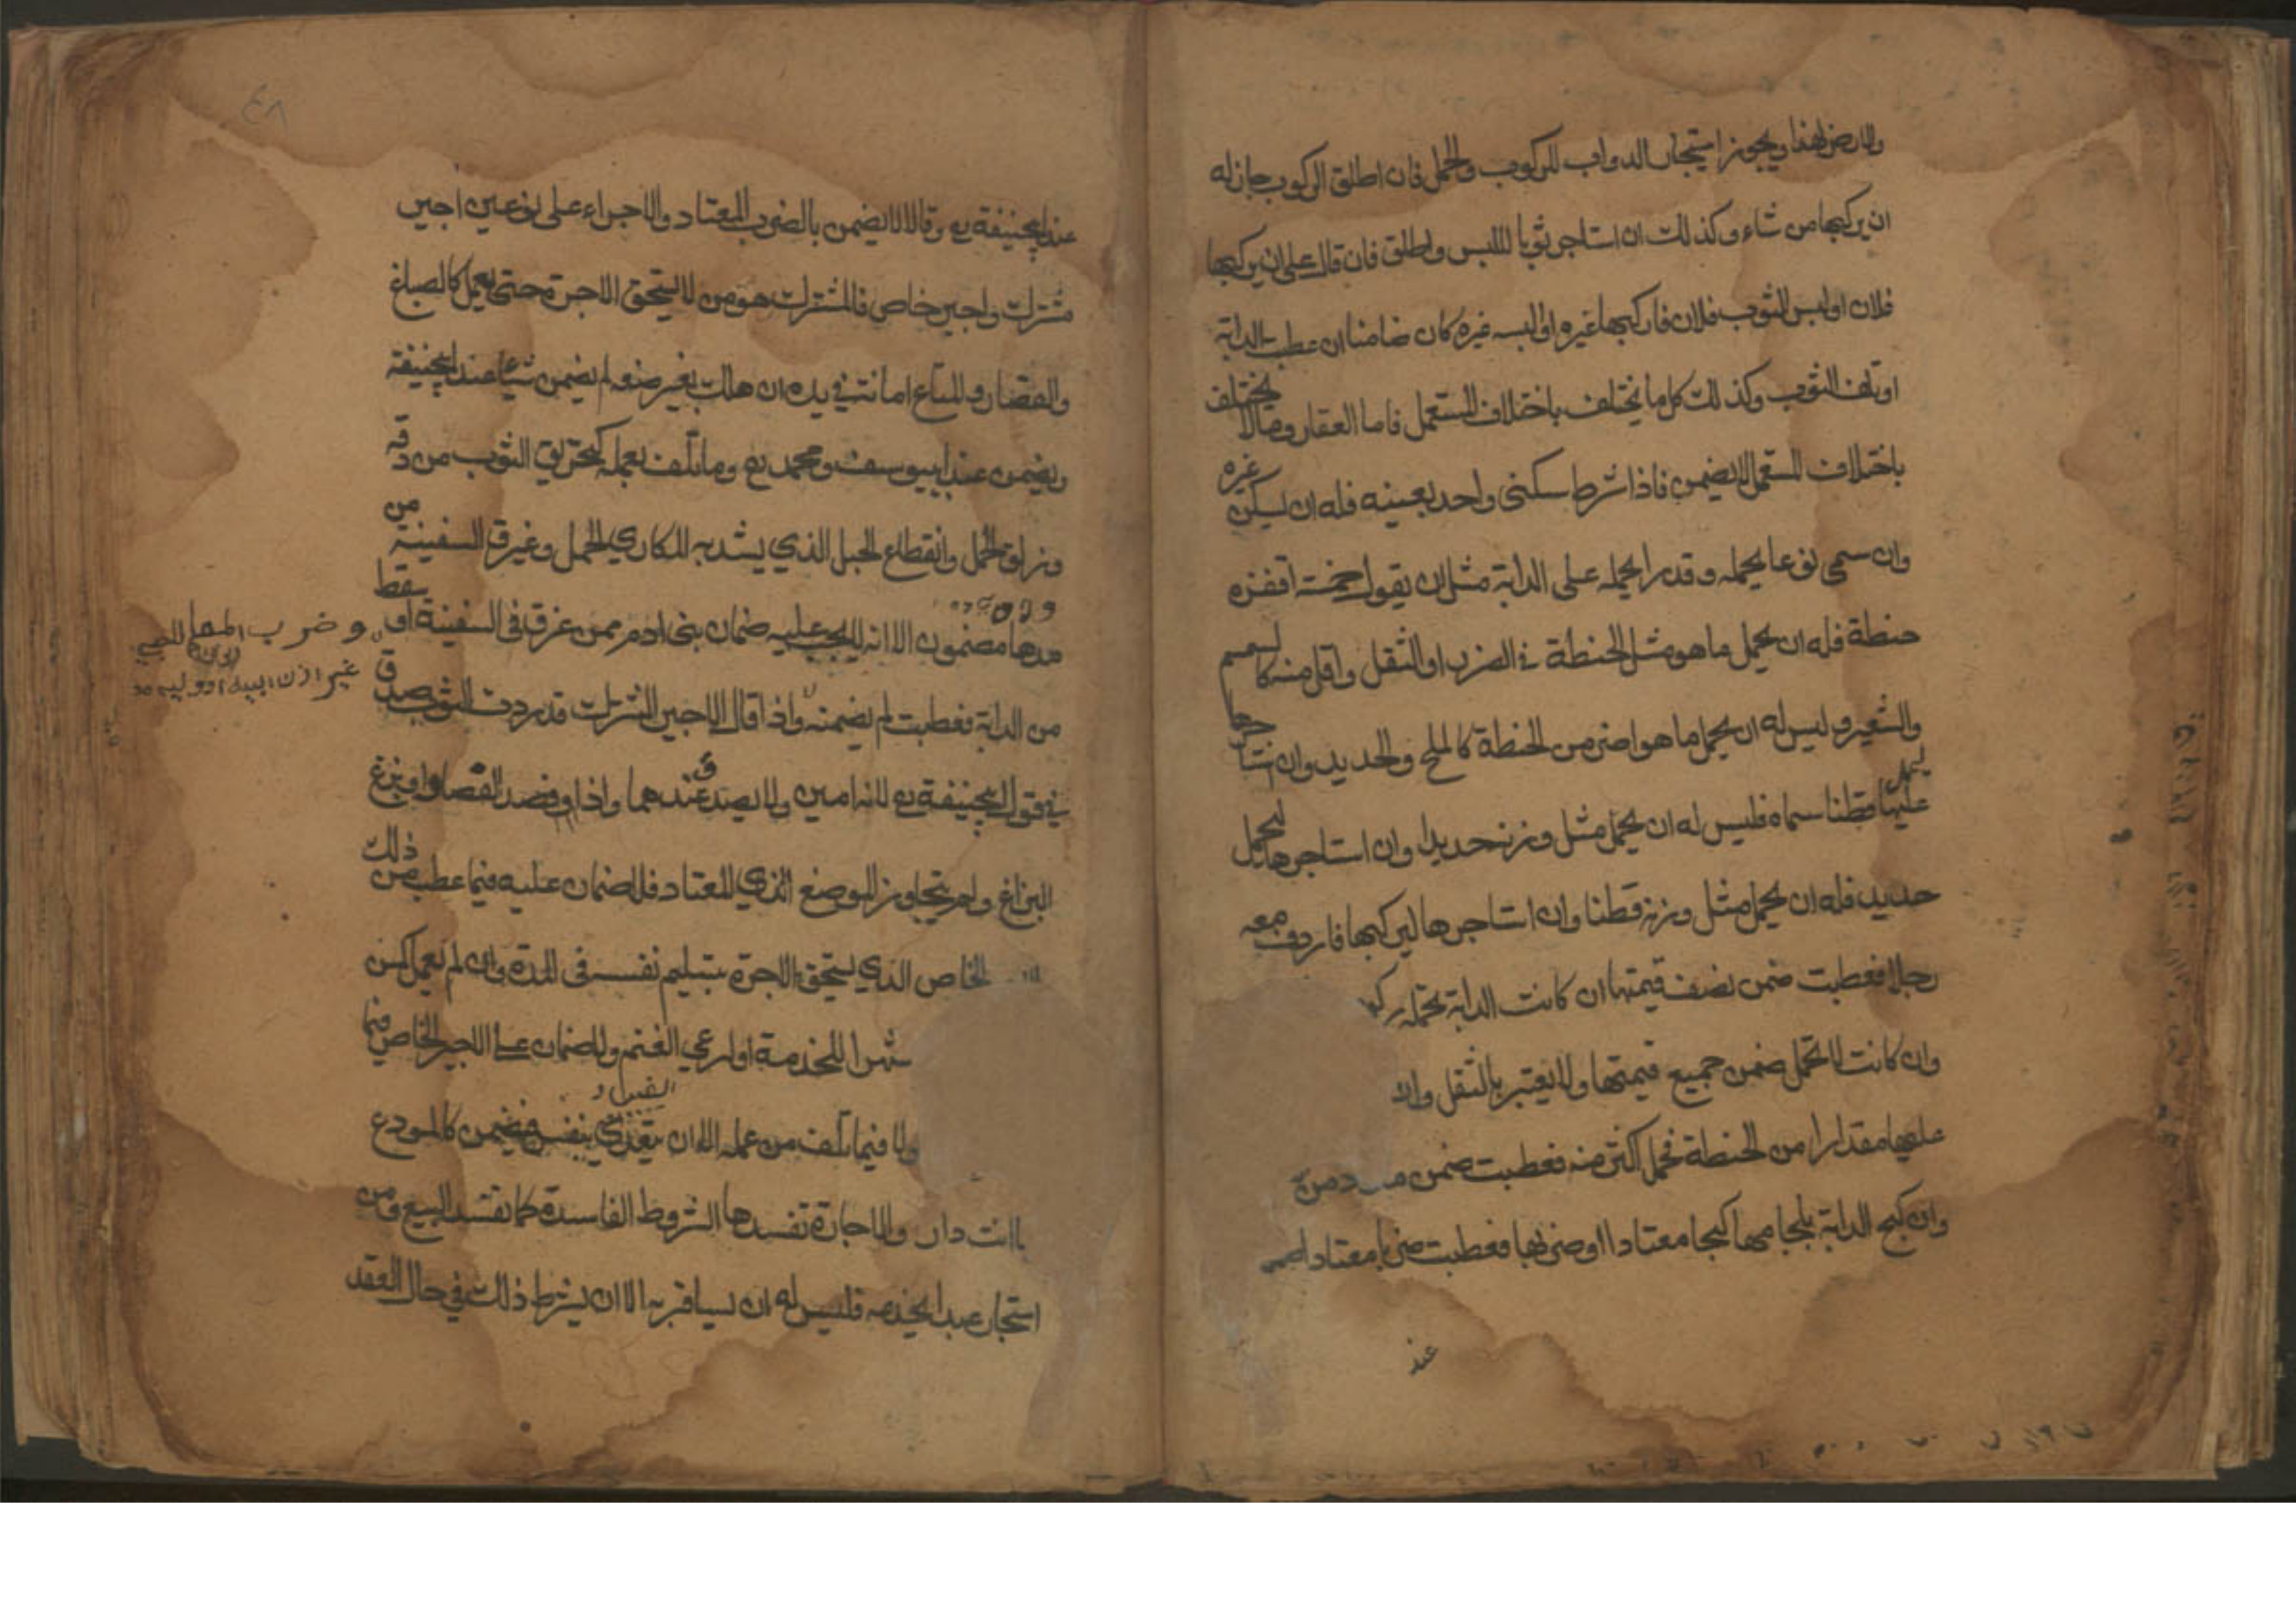 والارض لهذا ويجوز استيجار الدواب للركوب والحمل فان اطلق الركوب جاز له
ان يركبها من شاء وكذلك ان استاجر ثوبا للبس واطلق فان قال على ان يركبها
فلان او لبس الثوب فلان فاركبها غيره او البسه غيره كان ضامنا ان عطبت الدابة
او تلف الثوب وكذلك كل ما يختلف باختلاف المستعمل فاما العقار وما لا يختلف
باختلاف المستعمل لا يضمن فاذا شرط سكنى واحد بعينه فله ان يسكن غيره
وان سمى نوعا يحمله وقدرا يحمله على الدابة مثل ان يقول خمسة اقفزه
حنطة فله ان يحمل ما هو مثل الحنطة في الضرر او الثقل واقل منه كالسمسم
والشعير وليس له ان يحمل ما هو اضر من الحنطة كالملح والحديد وان استاجرها
ليحمل عليها قطنا سماه فليس له ان يحمل مثل وزنه حديدا وان استاجرها ليحمل
حديد فله ان يحمل مثل وزنه قطنا وان استاجرها ليركبها فاردف معه
رجلا فعطبت ضمن نصف قيمتها ان كانت الدابة تحمله
وان كانت لا تحمل ضمن جميع قيمتها ولا يعتبر بالثقل وان
عليها مقدارا من الحنطة فحمل اكثر منه فعطبت ضمن
وان كبح الدابة بلجامها كبحا معتادا او ضربها فعطبت ضربا معتادا
عند
٤٨
عند ابيحنيفة رح وقالا لا يضمن بالضرب المعتاد والاجراء على نوعين اجير
مشترك واجير خاص فالمشترك هو من لا يستحق الاجرة حتى يعمل كالصباغ
والقصار والمتاع امانة في يده ان هلك بغير صنعه لم يضمن شيئا عند ابيحنيفة
ويضمن عند ابييوسف ومحمد رح وما تلف بعمله كتخريق الثوب من دقه
وزلق الحمل وانقطاع الحبل الذي يشد به المكاري الحمل وغرق السفينة من
مدها مضمون الا انه لا يجب عليه ضمان بني ادم ممن غرق في السفينة او سقط
وضرب المعلم للصبي
غير اذن ابيه او وليه
من الدابة فعطبت لم يضمنه واذا قال الاجير المشترك قد رددت الثوب صدق
في قول ابيحنيفة رح لانه امين ولا يصدق عندهما واذا فصد الفصاد او بزغ
البزاغ ولم يتجاوز الموضع الذي المعتاد فلا ضمان عليه فيما عطب من ذلك
الخاص الذي يستحق الاجرة بتسليم نفسه في المدة وان لم يعمل كمن
شهرا للخدمة او لرعي الغنم ولا ضمان على الاجير الخاص فيما
ولا فيما تلف من عمله الا ان يتعدى بنفسه فيضمن كالمودع
والاجارة تفسدها الشروط الفاسدة كما تفسد البيع ومن
استجار عبدا لخدمه فليس له ان يسافر به الا ان يشرط ذلك في حال العقد